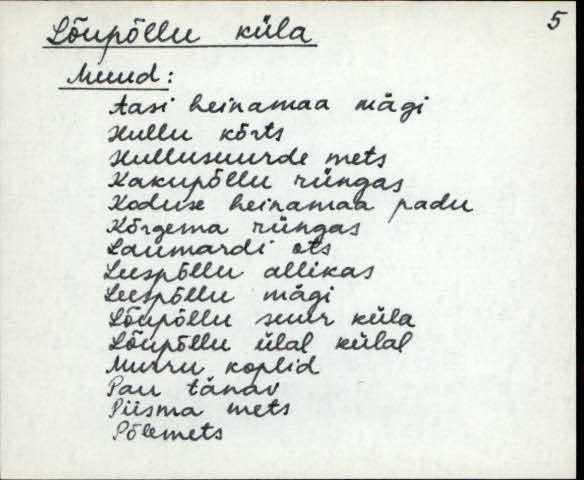 5
Lõupõllu küla
Muud:
Aasi heinamaa mägi
Hullu kõrts
Hullusuurde mets
Kakupõllu rüngas
Koduse heinamaa padu
Kõrgema rüngas
Laumardi ots
Leespõllu allikas
Leespõllu mägi
Lõupõllu suur küla
Lõupõllu ülal külal
Murru koplid
Pau tänav
Piisma mets
Põlemets